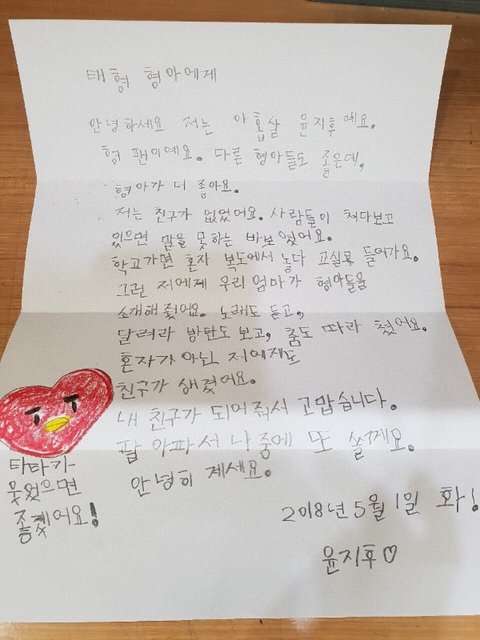 태형 형아에게
안녕하세요 저는 아홉살 윤지후예요.
형 팬이예요. 다른 형아들도 좋은데,
형아가 더 좋아요.
저는 친구가 없었어요. 사람들이 쳐다보고
있으면 말을 못하는 바보였어요.
학교가면 혼자 복도에서 놀다 교실로 들어가요.
그런 저에게 우리 엄마가 형아들을
소개해 줬어요. 노래도 듣고,
달려라 방탄도 보고, 춤도 따라 췄어요.
혼자가 아닌 저에게도
친구가 생겼어요.
내 친구가 되어 줘서 고맙습니다.
팔 아파서 나중에 또 쓸께요.
안녕히 계세요.
2018년 5월 1일 화!
윤지후♡
타타가
웃었으면
좋겠어요!